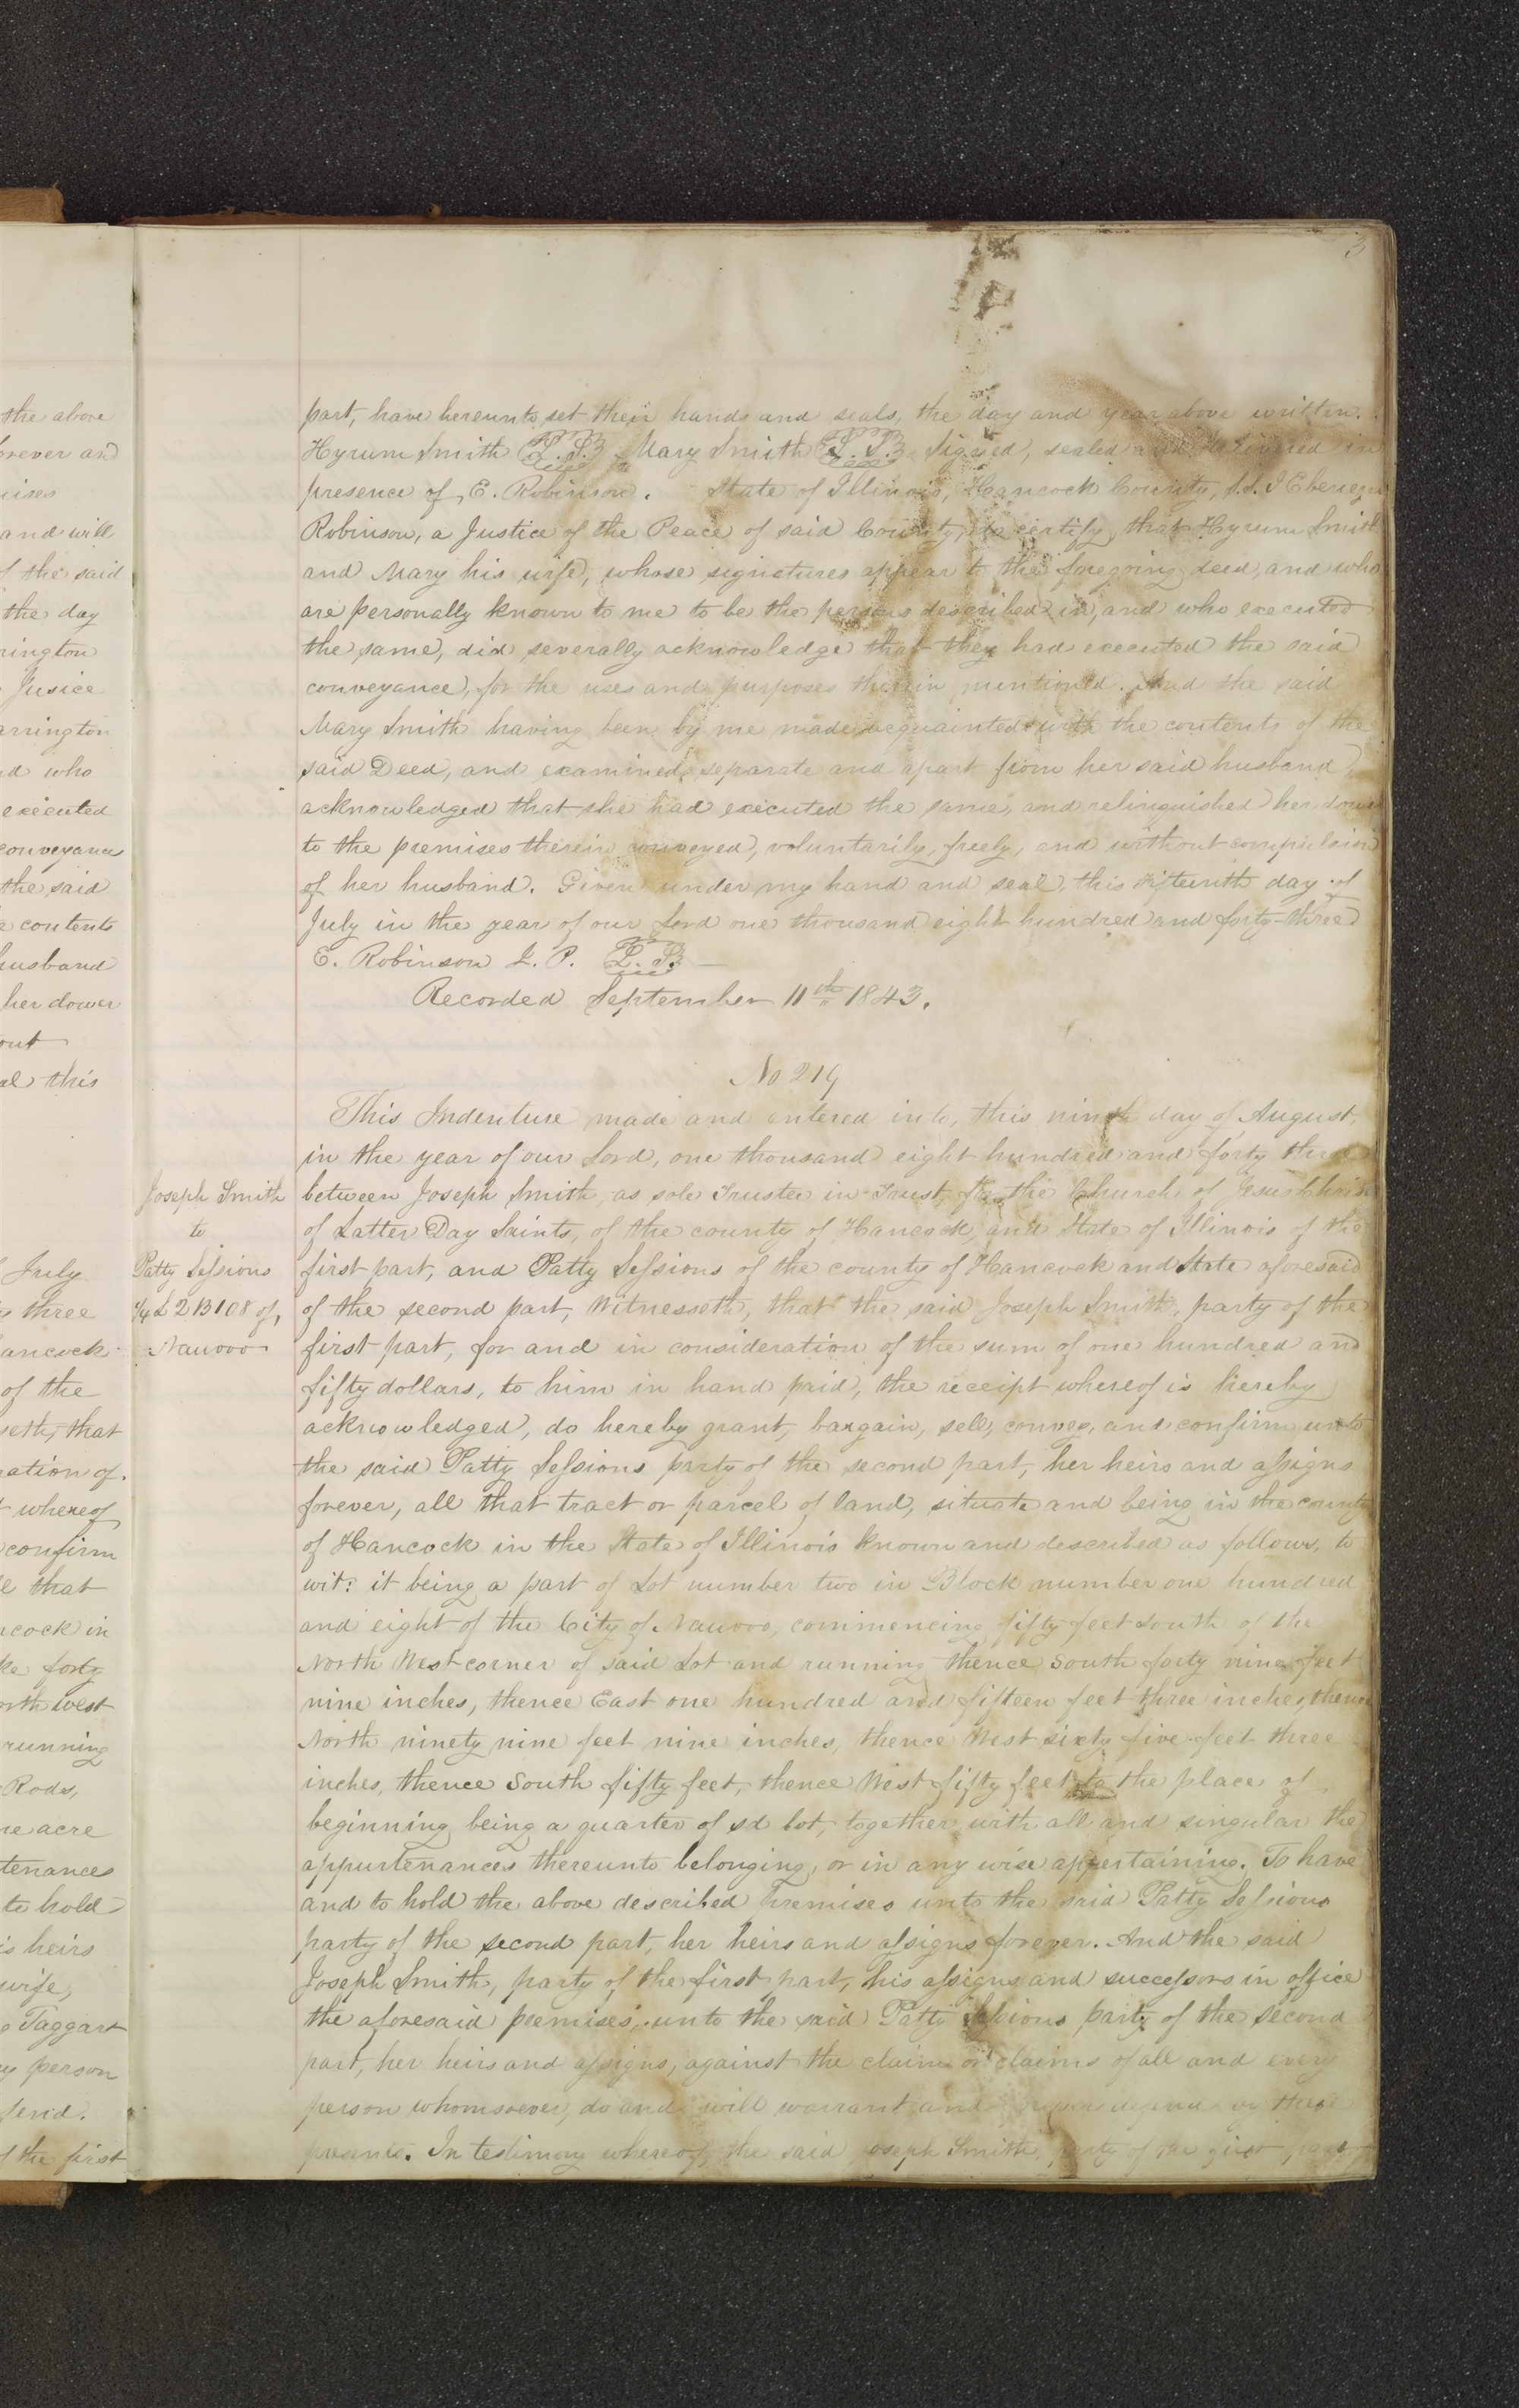 3
the above
and
and will
the said
the day
Jusice
who
executed
conveyance
the said
contents
husband
her dower
this
July
three
of the
that
of
whereof
confirm
that
in
forty
west
running
Rods,
acre
to hold
heirs
wife,
Taggart
person
the first
part, have hereunto set their hands and seals, the day and year above written.
Hyrum Smith L. S. Mary Smith L. S. Signed, sealed and delivered in
presence of, E. Robinson. State of Illinois, Hancock County, S.S. I Ebenezer
Robinson, a Justice of the Peace of said County, do certify that Hyrum Smith
and Mary his wife, whose signatures appear to the foregoing deed, and who
are personally known to me to be the persons described in, and who executed
the same, did severally acknowledge that they had executed the said
conveyance, for the uses and purposes therein mentioned. And the said
Mary Smith having been by me made acquainted with the contents of the
said Deed, and examined separate and apart from her said husband,
acknowledged that she had executed the same, and relinquished her dower
to the premises therein conveyed, voluntarily, freely, and without compulsion
of her husband. Given under my hand and seal, this fifteenth day of
July in the year of our Lord one thousand eight hundred and forty-three
E. Robinson J. P. L. S.
Recorded September 11th 1843.
No 219
Joseph Smith
to
Patty Sessions
1/4 L 2 B 108 of,
Nauvoo
This Indenture made and entered into, this ninth day of August,
in the year of our Lord, one thousand eight hundred and forty three
between Joseph Smith, as sole Trustee in Trust, for the Church of Jesus Christ
of Latter Day Saints, of the county of Hancock, and State of Illinois of the
first part, and Patty Sessions of the county of Hancock and State aforesaid
of the second part, Witnesseth, that the said Joseph Smith, party of the
first part, for and in consideration of the sum of one hundred and
fifty dollars, to him in hand paid, the receipt whereof is hereby
acknowledged, do hereby grant, bargain, sell, convey, and confirm unto
the said Patty Sessions party of the second part, her heirs and assigns
forever, all that tract or parcel of land, situate and being in the county
of Hancock in the State of Illinois known and described as follows, to
wit: it being a part of Lot number two in Block number one hundred
and eight of the City of Nauvoo, commencing fifty feet south of the
North West corner of said Lot and running thence South forty nine feet
nine inches, thence East one hundred and fifteen feet three inches, thence
North ninety nine feet nine inches, thence West sixty five feet three
inches, thence South fifty feet, thence West fifty feet to the place of
beginning being a quarter of sd lot, together with all and singular the
appurtenances thereunto belonging, or in any wise appertaining. To have
and to hold the above described premises unto the said Patty Sessions
party of the second part, her heirs and assigns forever. And the said
Joseph Smith, party of the first part, his assigns and successors in office
the aforesaid premises, unto the said Patty Sessions party of the second
part, her heirs and assigns, against the claim or claims of all and every
person whomsoever, do and will warrant and forever defend by these
presents. In testimony whereof, the said Joseph Smith, party of the first part,